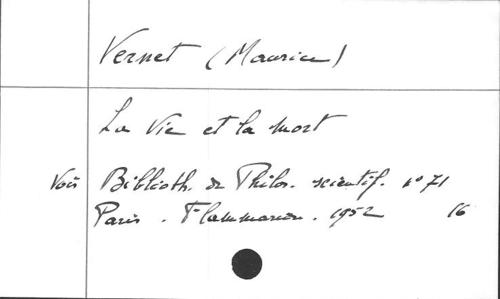 Vernet (Maurice)
La Vie et la mort
Voir Biblioth. de Philos. scientif. n° 71
Paris. Flammarion. 1952 16